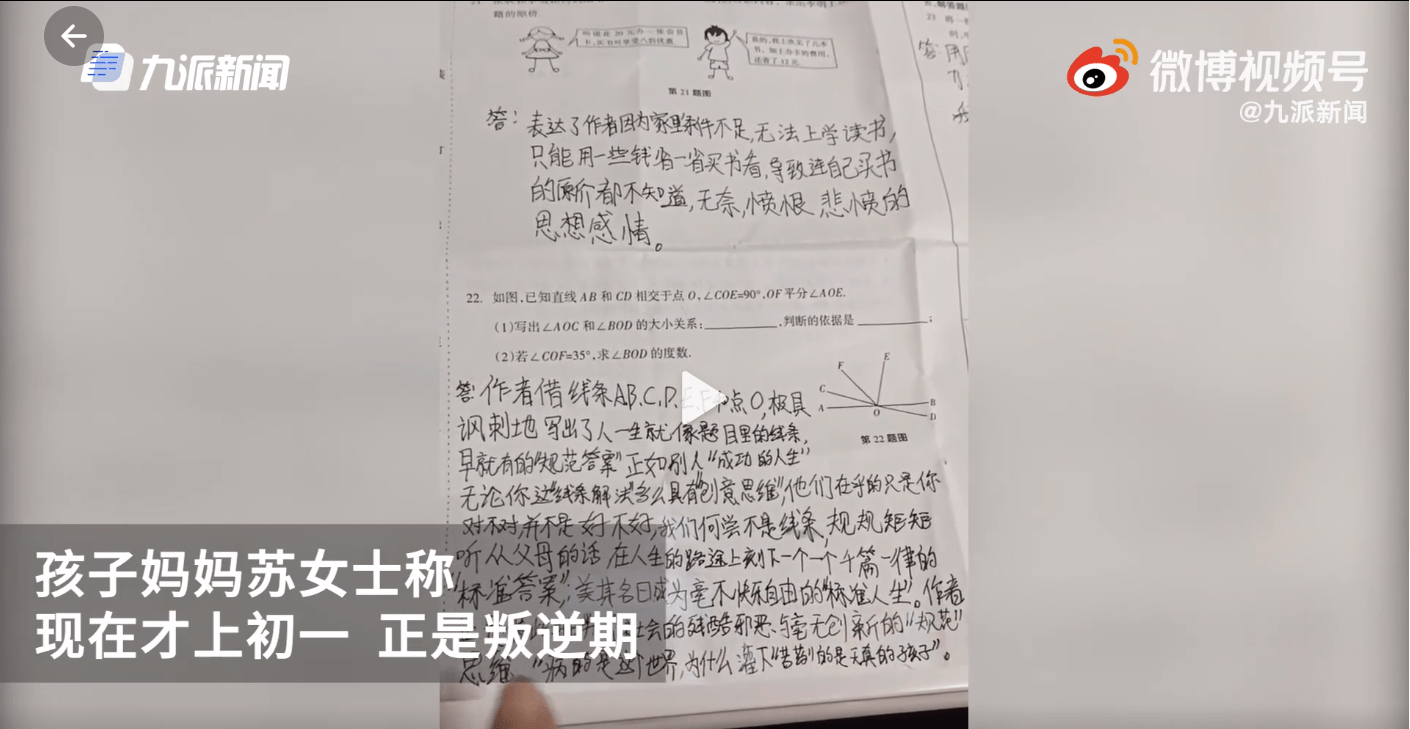 九派新闻
微博视频号
@九派新闻
题的原价
听说花20元办一张会员
卡,买书可享受八折优惠.
是的,我上次买了几本
书,加上办卡的费用,
还省了12元.
第21题图
23
答:用
答:表达了作者因为家里条件不足,无法上学读书,
只能用一些钱省一省买书看,导致连自己买书
的原价都不知道,无奈,愤恨悲愤的
思想感情。
22. 如图,已知直线AB和CD相交于点O,∠COE=90°,OF平分∠AOE.
(1)写出∠AOC和∠BOD的大小关系:__________,判断的依据是__________;
(2)若∠COF=35°,求∠BOD的度数.
F
E
C
A
O
B
D
第22题图
答:作者借线条AB.C.D.E.F和点O,极具
讽刺地写出了人一生就像题目里的线条,
早就有的“规范答案”正如别人“成功的人生”
无论你这“线条解法”多么具有“创意思维”,他们在乎的只是你
对不对,并不是好不好,我们何尝不是线条,规规矩矩
听从父母的话,在人生的路途上刻下一个一个千篇一律的
“标准答案”,美其名曰成为毫不快乐自由的“标准人生”。作者
社会的残酷邪恶与毫无创新的“规范”
思维 “病的是这个世界,为什么灌下“苦药”的是天真的孩子”。
孩子妈妈苏女士称
现在才上初一 正是叛逆期